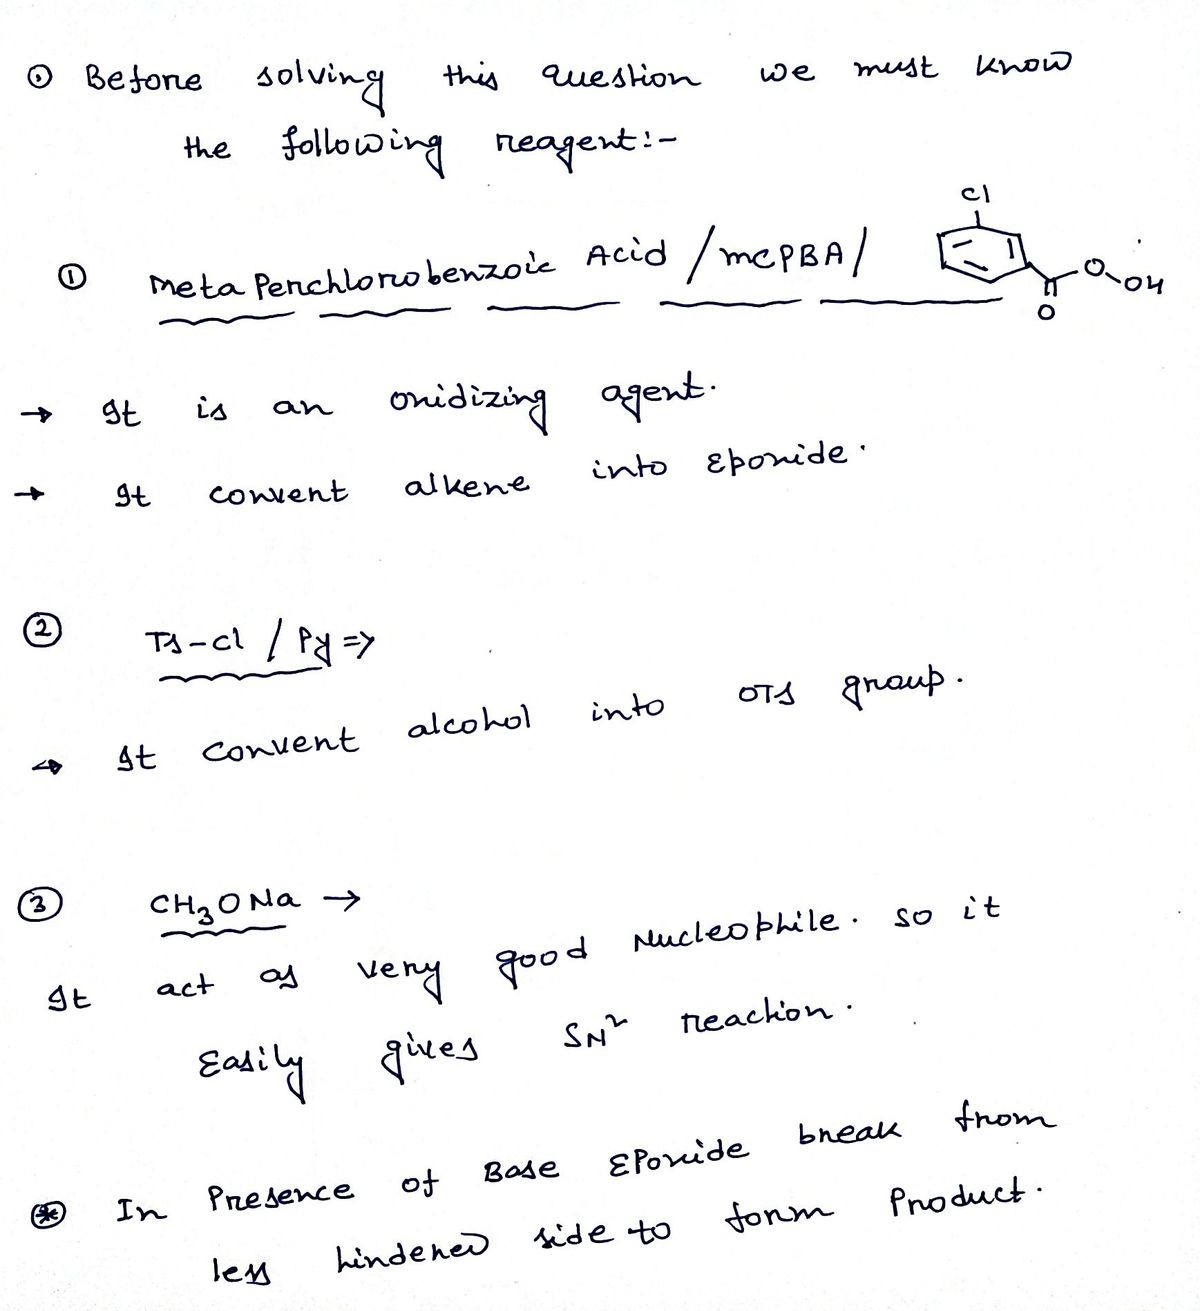 ⊙ Before solving this question we must know
the following reagent:-
① Meta Perchlorobenzoic Acid /mCPBA/ Cl O OH O
→ It is an oxidizing agent.
→ It convert alkene into Epoxide.
② Ts-Cl / Py ⇒
→ It convert alcohol into OTs group.
③ CH₃ONa →
It act as very good Nucleophile. so it
Easily gives SN² reaction.
⊛ In Presence of Base EPoxide break from
less hindered side to form Product.